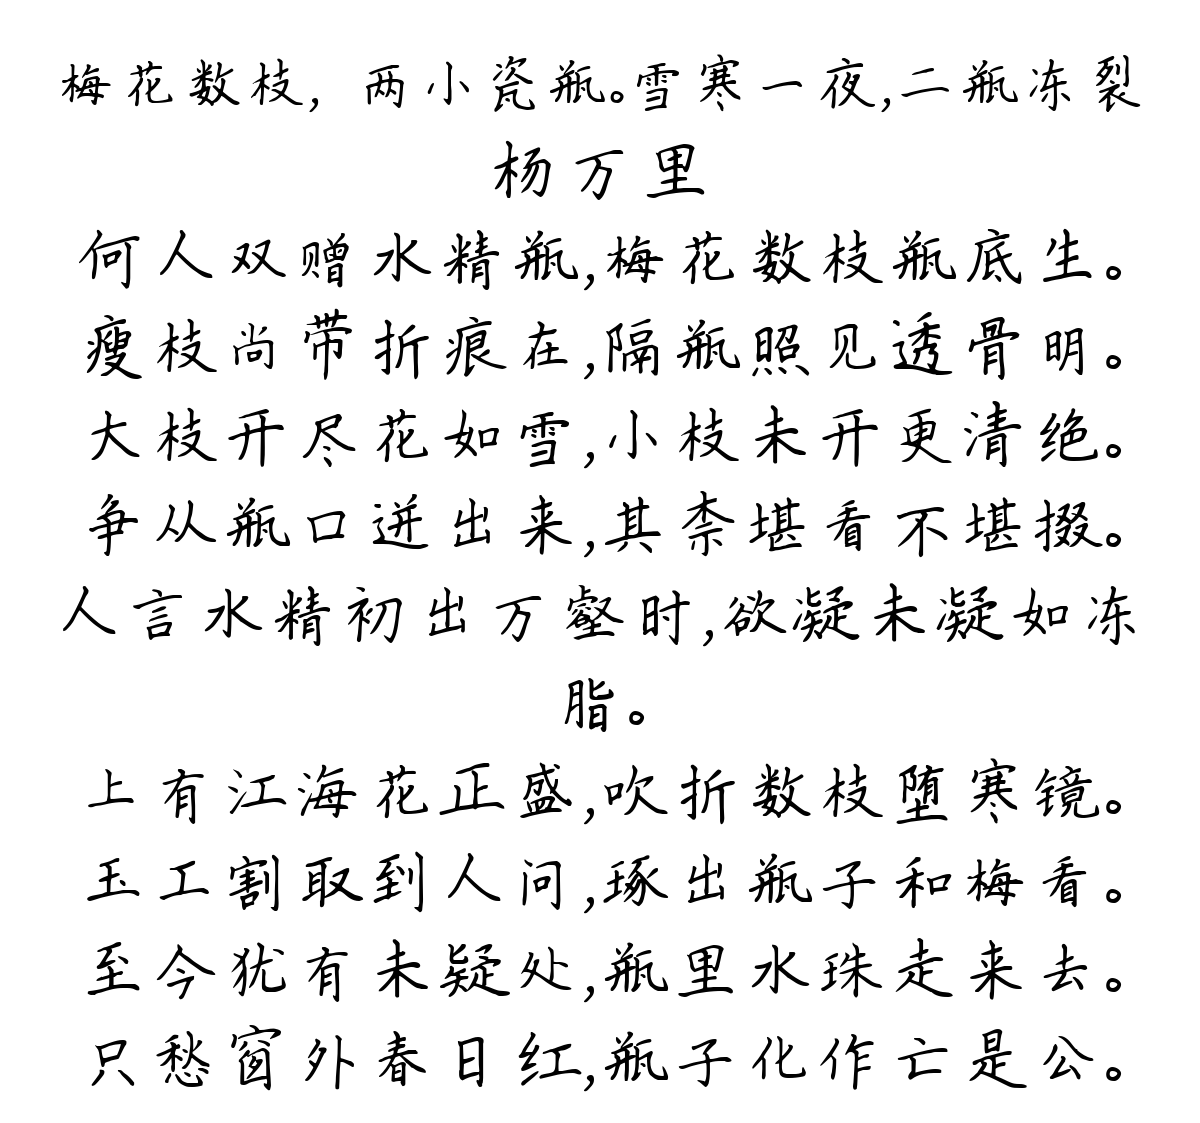 梅花数枝，两小瓷瓶。雪寒一夜,二瓶冻裂
杨万里
何人双赠水精瓶,梅花数枝瓶底生。
瘦枝尚带折痕在,隔瓶照见透骨明。
大枝开尽花如雪,小枝未开更清绝。
争从瓶口迸出来,其柰堪看不堪掇。
人言水精初出万壑时,欲凝未凝如冻
脂。
上有江海花正盛,吹折数枝堕寒镜。
玉工割取到人问,琢出瓶子和梅看。
至今犹有未疑处,瓶里水珠走来去。
只愁窗外春日红,瓶子化作亡是公。